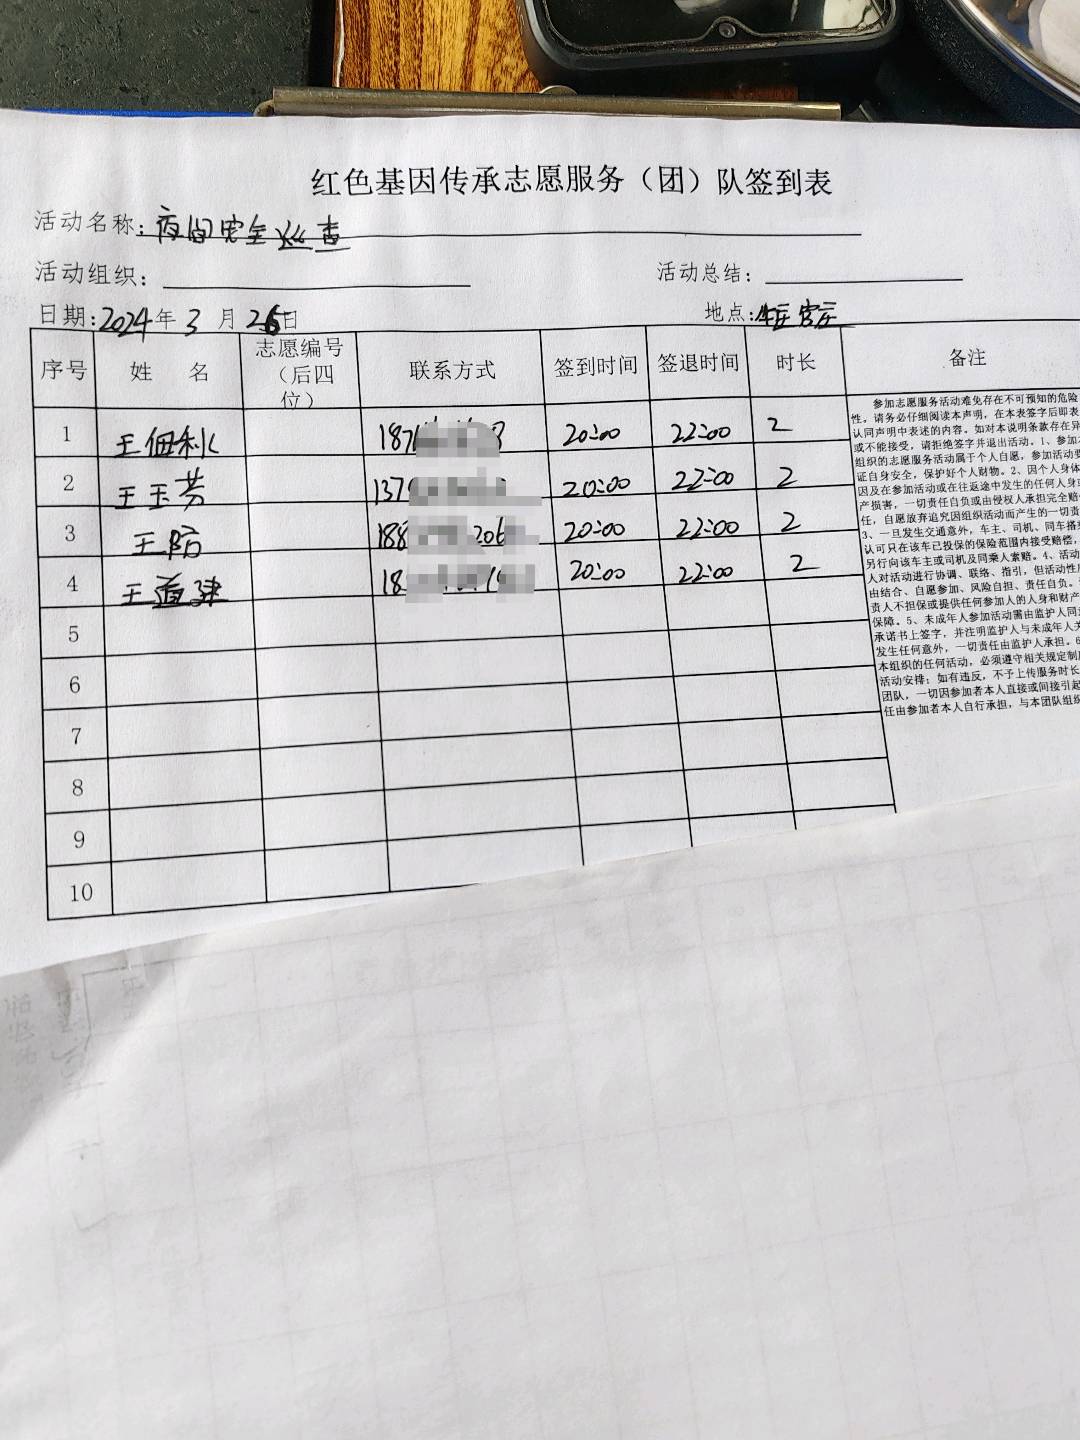 红色基因传承志愿服务（团）队签到表
活动名称：夜间安全巡查
活动组织：
活动总结：
日期：2024年3月26日
地点：官庄
序号 姓 名 志愿编号（后四位） 联系方式 签到时间 签退时间 时长 备注
1 王佃利 187 8 20:00 22:00 2
2 王玉芳 137 20:00 22:00 2
3 王防 188 206 20:00 22:00 2
4 王道建 18 20:00 22:00 2
5
6
7
8
9
10
参加志愿服务活动难免存在不可预知的危险
性。请务必仔细阅读本声明，在本表签字后即表
认同声明中表述的内容。如对本说明条款存在异
或不能接受，请拒绝签字并退出活动。1、参加本
组织的志愿服务活动属于个人自愿，参加活动要
证自身安全，保护好个人财物。2、因个人身体
因及在参加活动或在往返途中发生的任何人身或
产损害，一切责任自负或由侵权人承担完全赔
任，自愿放弃追究因组织活动而产生的一切责
3、一旦发生交通意外，车主、司机、同车搭乘
认可只在该车已投保的保险范围内接受赔偿，
另行向该车主或司机及同乘人索赔。4、活动
人对活动进行协调、联络、指引，但活动性质
由结合、自愿参加、风险自担、责任自负。
责人不担保或提供任何参加人的人身和财产
保障。5、未成年人参加活动需由监护人同意
承诺书上签字，并注明监护人与未成年人关
发生任何意外，一切责任由监护人承担。6
本组织的任何活动，必须遵守相关规定制度
活动安排；如有违反，不予上传服务时长
团队，一切因参加者本人直接或间接引起
任由参加者本人自行承担，与本团队组织